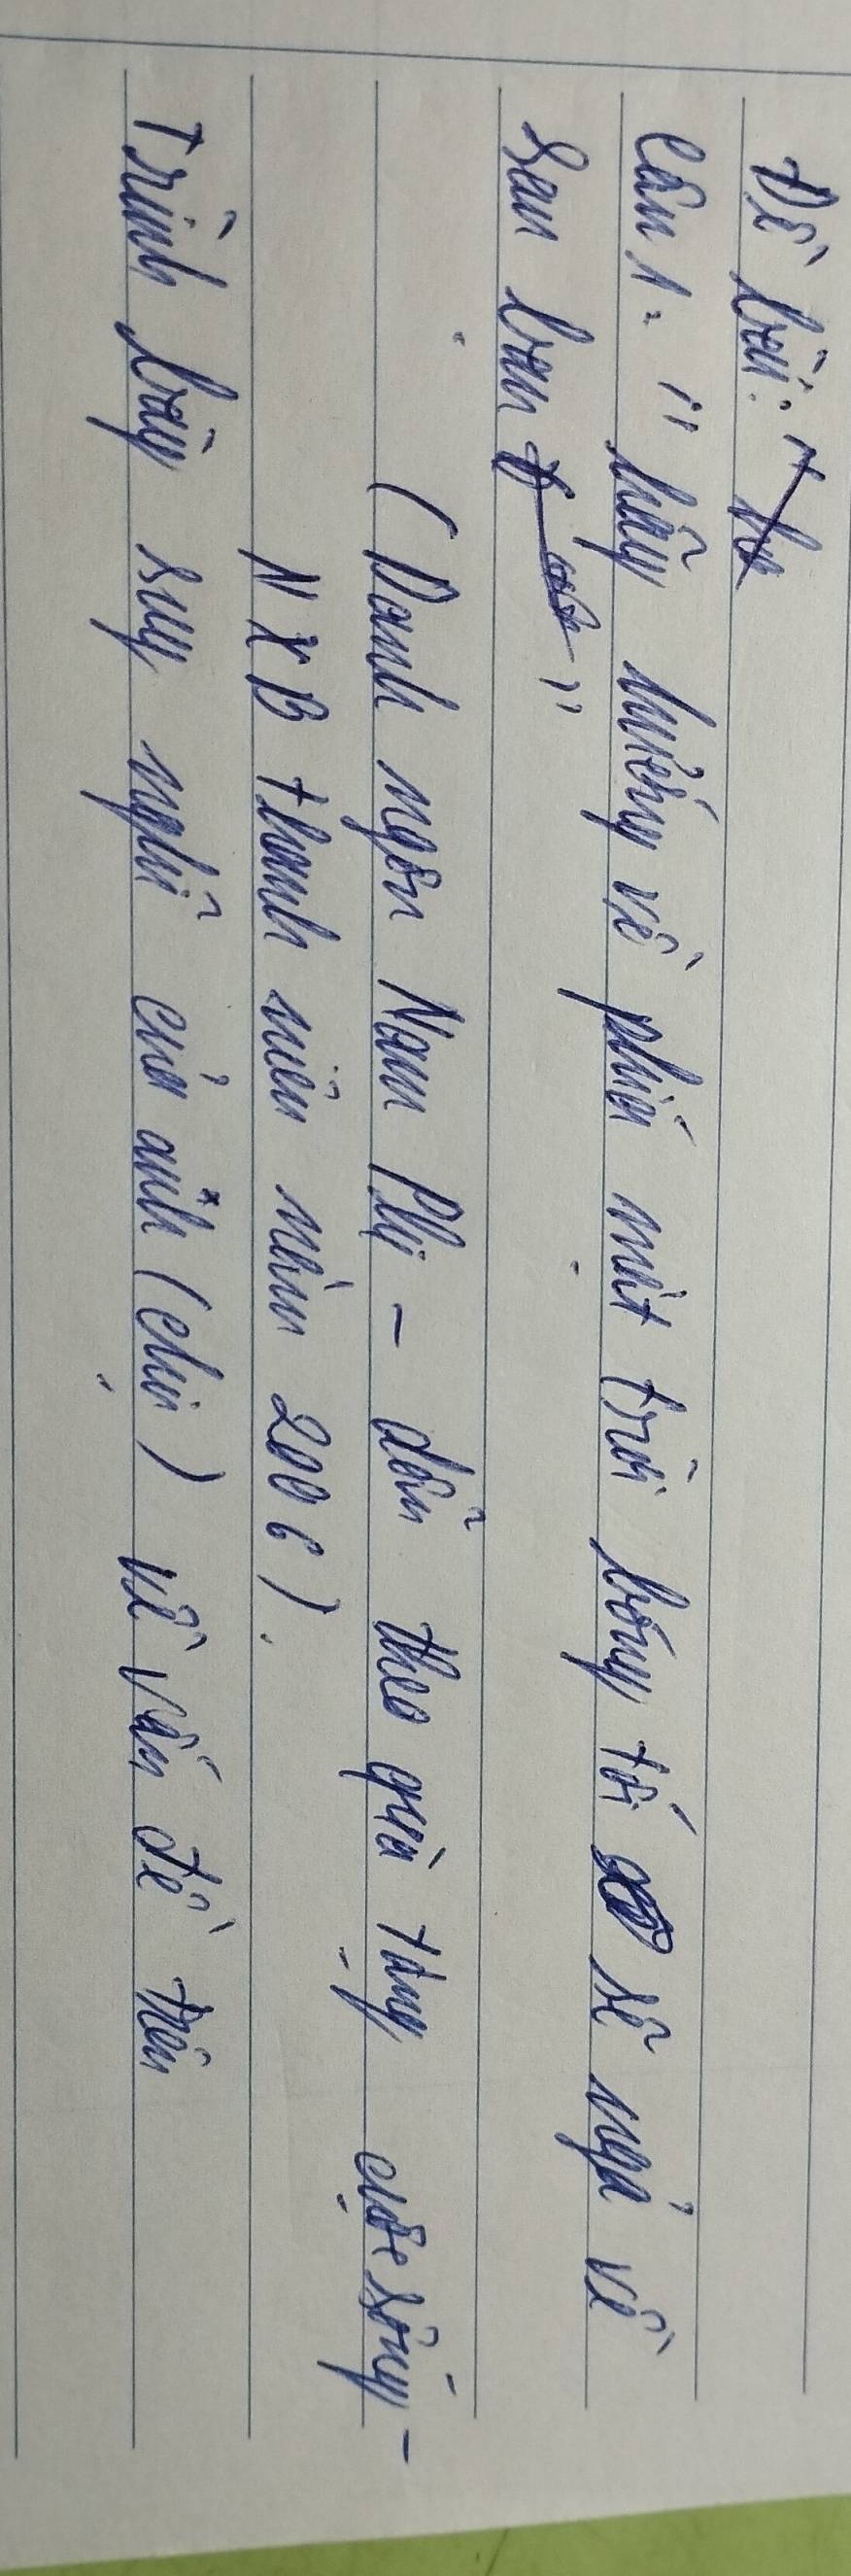 Đề bài:
Câu 1: "hãy hướng về phía mặt trời bóng tối sẽ ngả về
sau bạn"
(Danh ngôn Nam Phi - dẫn theo quà tặng cuộc sống -
NXB thanh niên năm 2006).
Trình bày suy nghĩ của anh (chị) về vấn đề trên